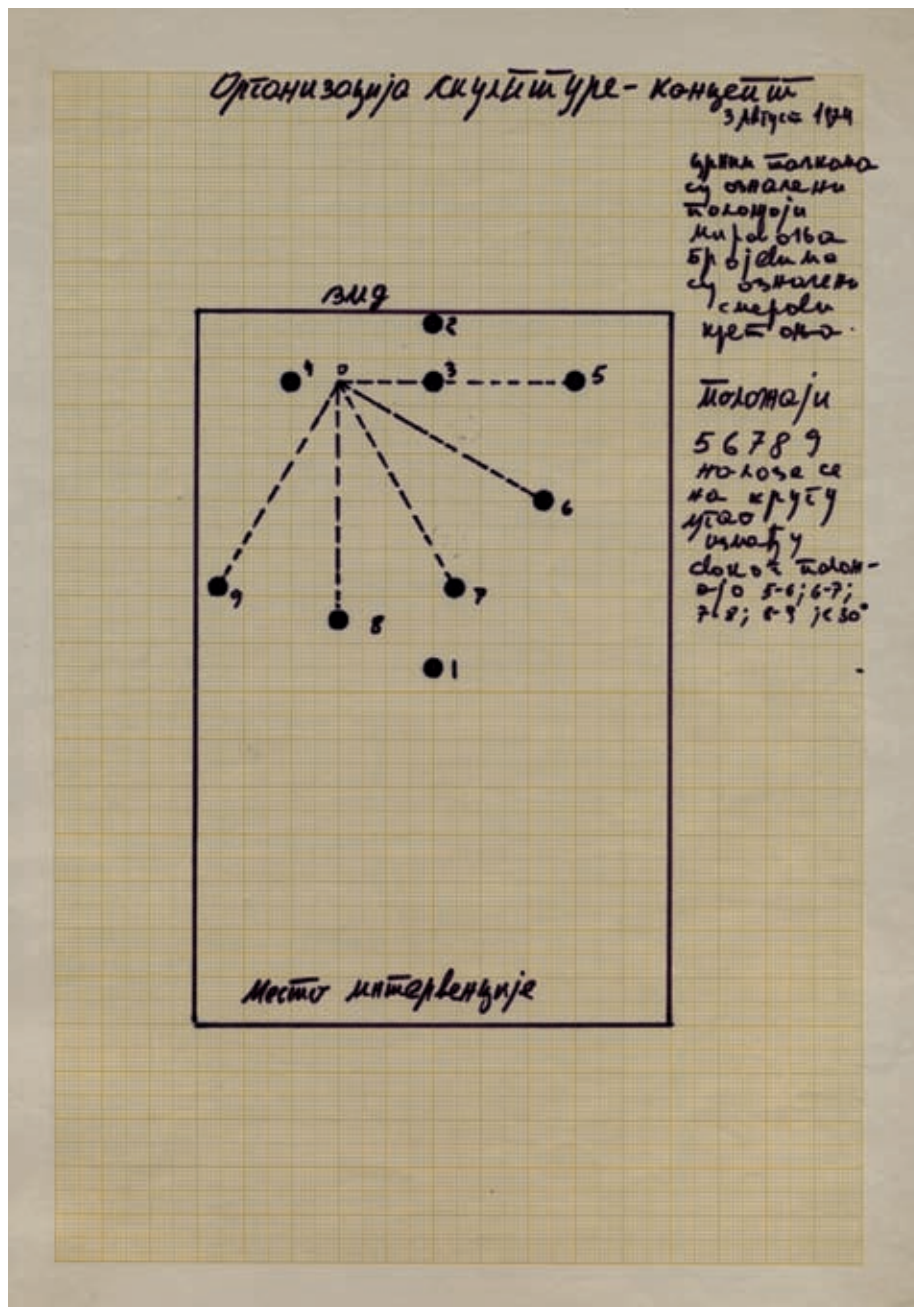 Организација скулптуре - концепт
3 Август 1974
црним тачкама
су означени
положаји
мировања
бројевима
су означени
смерови
кретања.
зид
2
4 0 3 5
положаји
5 6 7 8 9
налазе се
на кругу
угао
између
сваког полож-
аја 5-6; 6-7;
7-8; 8-9 је 30°
6
9 7
8
1
Место интервенције